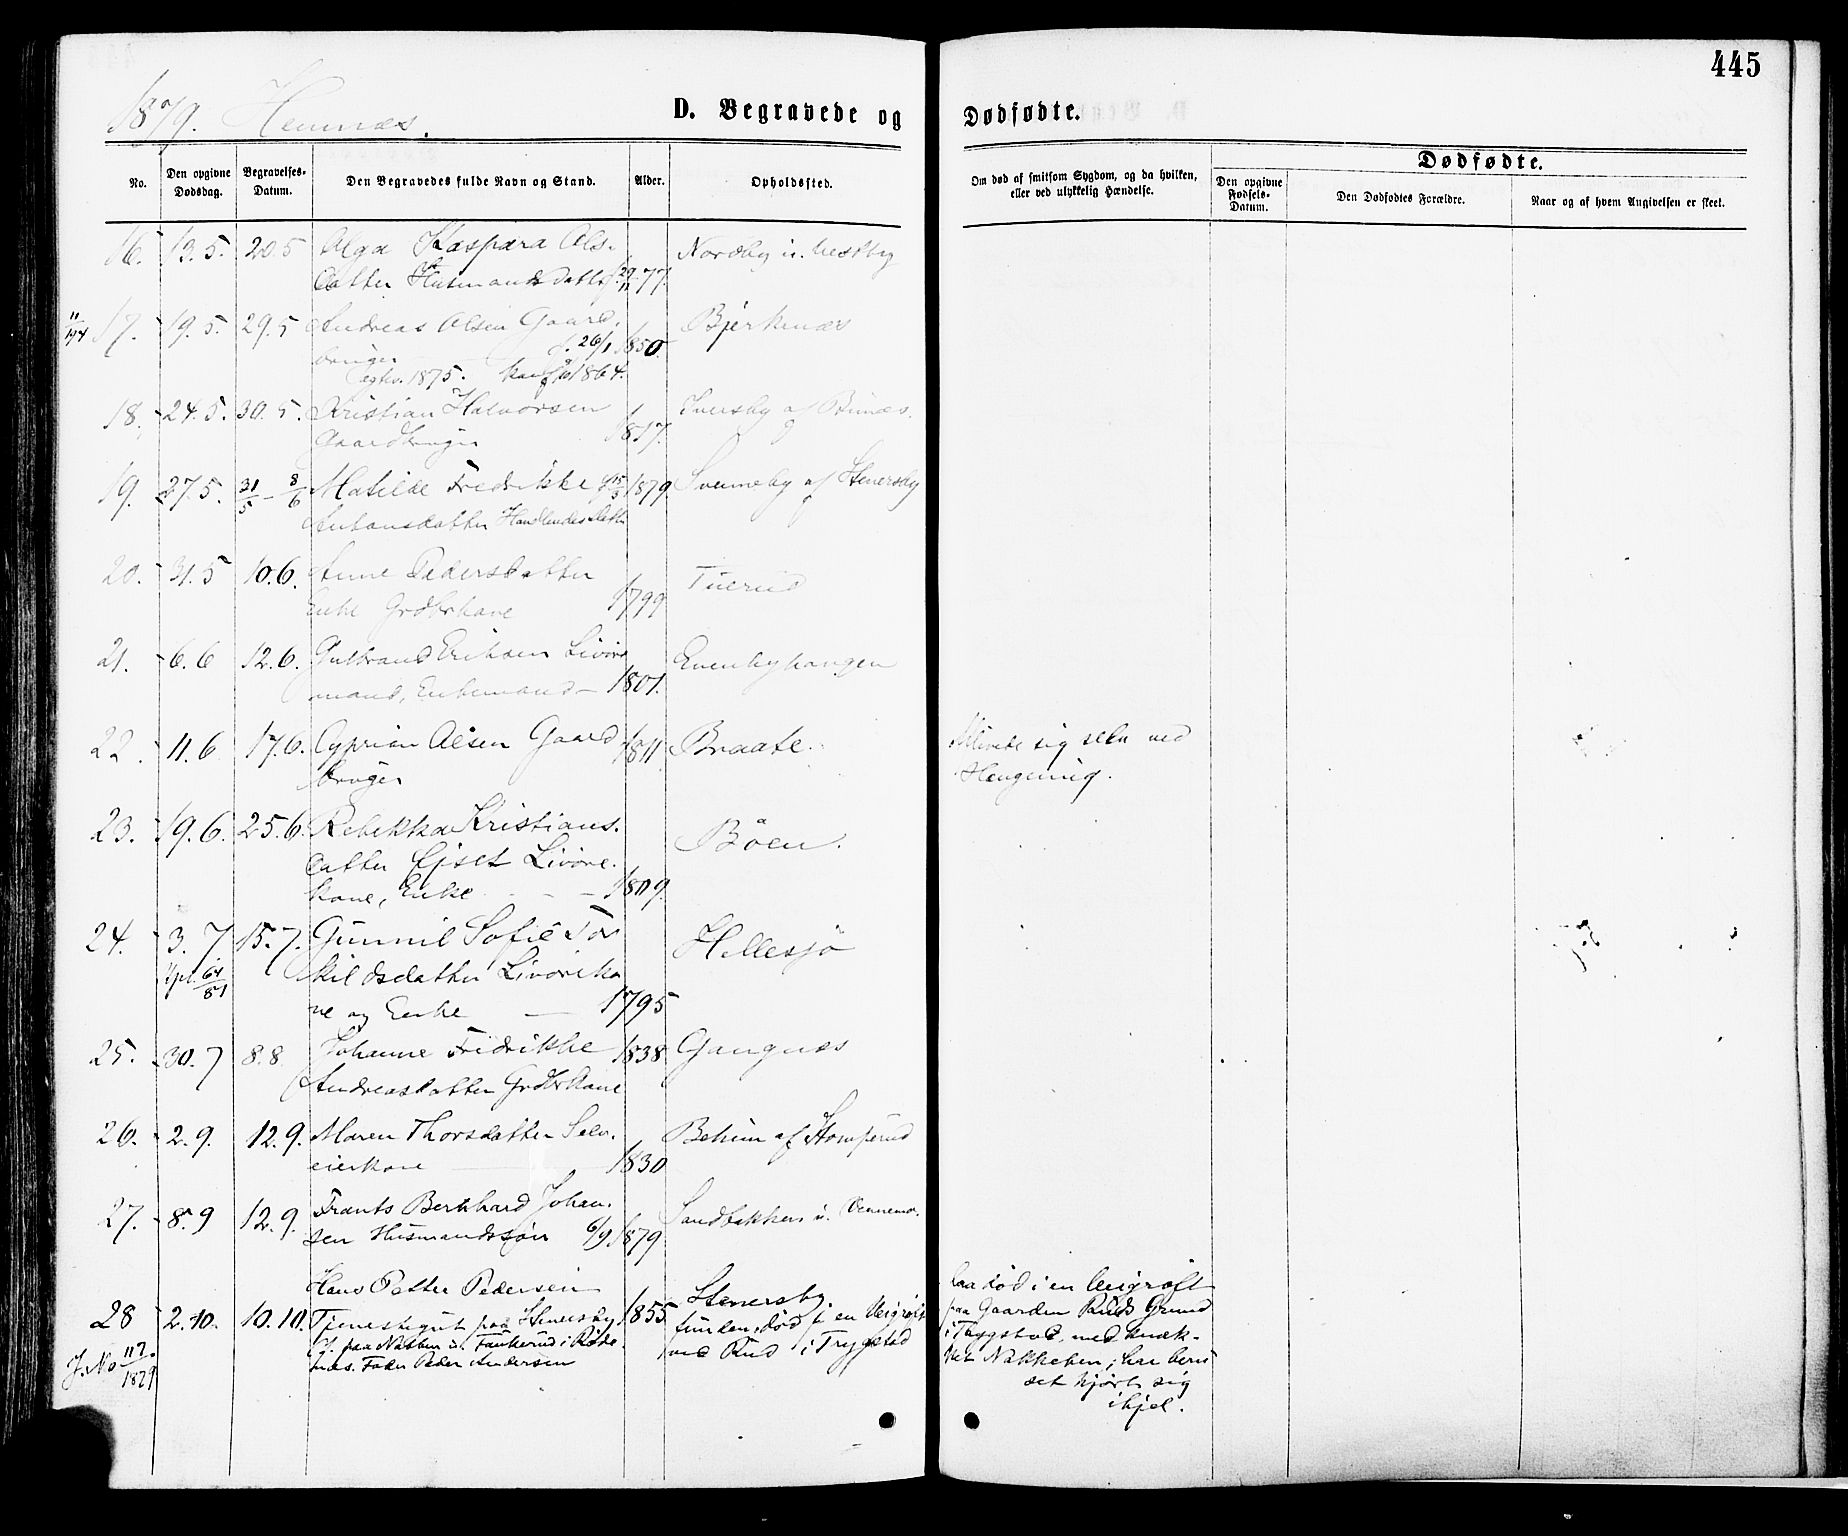 445
1879. Hemnæs.
D. Begravede og Dødfødte.
No.
Den opgivne Dødsdag.
Begravelses-Datum.
Den Begravedes fulde Navn og Stand.
Alder.
Opholdssted.
Om død af smitsom Sygdom, og da hvilken, eller ved ulykkelig Hændelse.
Dødfødte.
Den opgivne Fødsels-Datum.
Den Dødfødtes Forældre.
Naar og af hvem Angivelsen er skeet.
16. 19.5. 20.5 Olga Kaspara Ols- Nordby u. Vestby
datter Husmandsdatter f. 29/11 77.
11/194 17. 19.5. 29.5 Andreas Olsen Gaard- Bjerkenæs
bruger f. 26/1 1850.
1875. 1864.
18. 24.5. 30.5. Kristian Halvorsen Iversby af Bunæs.
Gaardbruger 1817.
19. 27.5. 31/5 - 8/6 Matilde Fredrikke f 15/5 1879. Svenneby af Stenersby
Antonsdatter Handlendes Datter
20. 31.5 10.6. Anne Pedersdatter Tuerud
Enke Grdbrkone 1799
21. 6.6 12.6. Gulbrand Eriksen Livøre Evenbyhaugen
mand, Enkemand - 1801.
22. 11.6 17.6. Cyprian Olsen Gaard 1811 Braate. Aflivede sig selv ved
bruger Hængning.
23. 19.6. 25.6. Rebekka Kristians- Böen.
datter Ejset Livøre-
kone, Enke - - 1809.
24. 3.7 15.7. Gunnil Sofie Tor Hellesjö
64/81 kildsdatter Livøreko
ne og Enke - 1795
25. 30.7 8.8. Johanne Fredrikke 1838 Gangnæs
Andreasdatter Grdbrkone
26. 2.9. 12.9. Maren Thorsdatter Selv- Behim af Stomperud
eierkone 1830
27. 8.9 12.9. Frants Bernhard Johan- Sandbakken u. Vennemo.
sen Husmandssøn 6/9 1879
28 2.10. 10.10. Hans Petter Pedersen 1855 Stenersby
Tjenestegut paa Stenersby funden død i en Veigrøft
f. paa Nabben u. Fankerud i Røde ved Rud i Trygstad
næs. Fader Peder Andersen
J. No 117/1879
laa død i en Veigrøft
paa Gaarden Ruds Grund
i Trygstad, med knæk-
ket Nakkeben; har beru
set kjørt sig
ihjel.